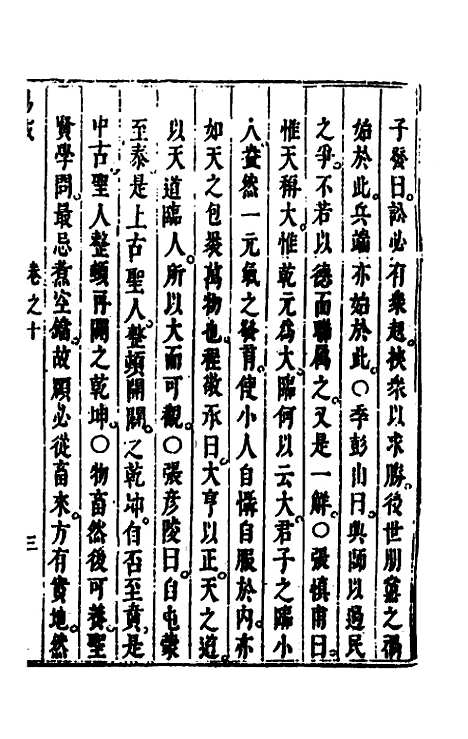 子發曰訟必有衆起挾衆以求勝後世朋黨之禍
始於此兵端亦始於此○季彭山曰興師以遏民
之爭不若以德而聯屬之又是一解○張慎甫曰
惟天稱大惟乾元爲大臨何以云大君子之臨小
人盎然一元氣之發育使小人自懾自服於內亦
如天之包裹萬物也程敬承曰大亨以正天之道
以天道臨人所以大而可觀○張彥陵曰自屯蒙
至泰是上古聖人整頓開闢之乾坤自否至賁是
中古聖人整頓再闢之乾坤○物畜然後可養聖
賢學問最忌煮空鐺故頤必從畜來方有實地然
卷之十
三